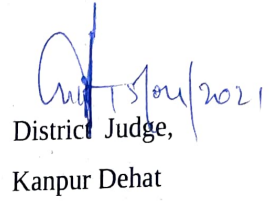 15/04/2021
District Judge,
Kanpur Dehat